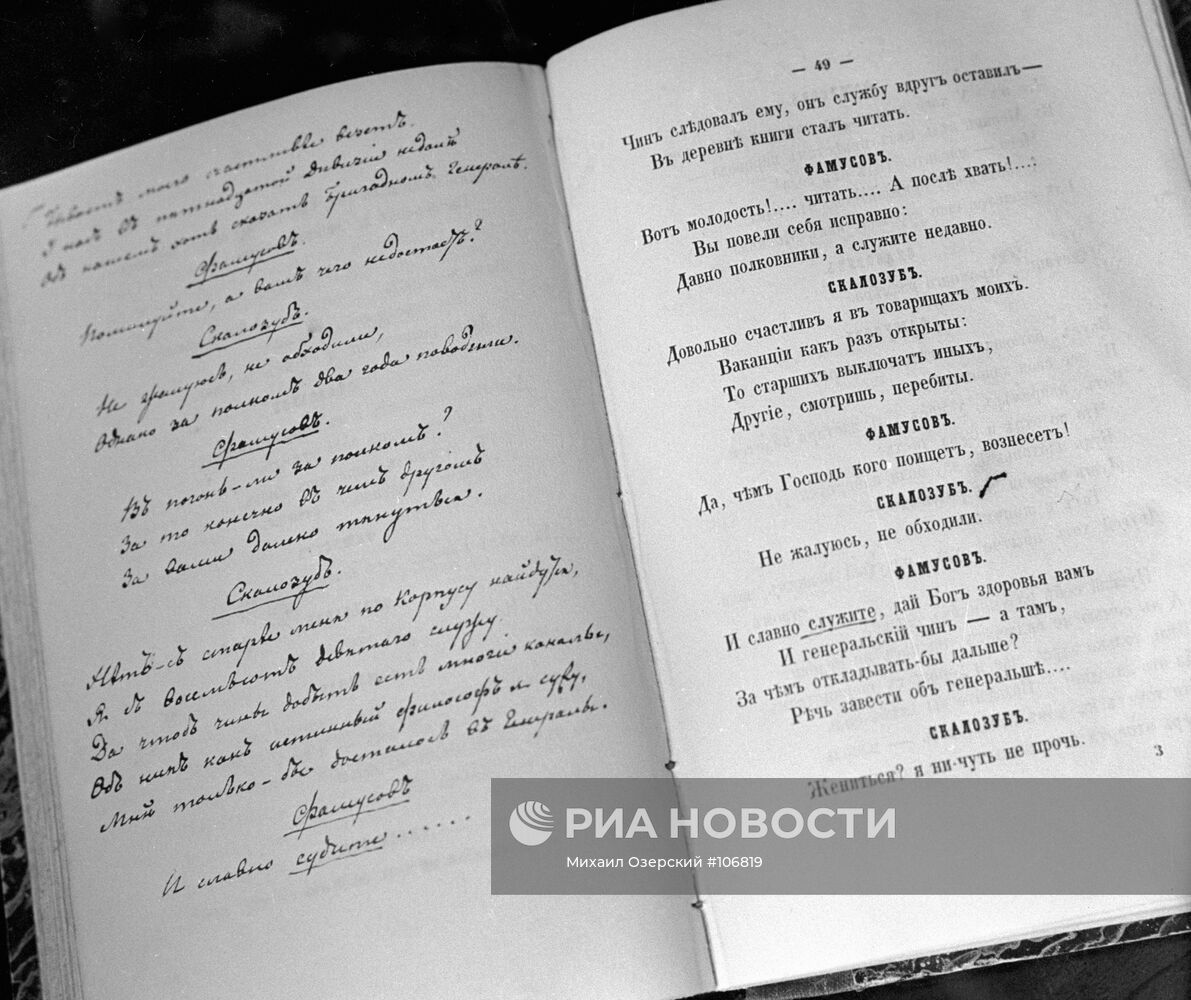 Чивость моего счастливѣе везетъ.
У насъ въ пятнадцатой дивизіи недалѣ
Объ нашемъ хоть сказать Бригадномъ Генералѣ.
Фамусовъ.
Помилуйте, а вамъ чего недостаетъ?
Скалозубъ.
Не жалуюсь, не обходили,
Однако за полкомъ два года поводили.
Фамусовъ.
Въ погонь-ли за полкомъ?
За то конечно въ чемъ другомъ
За вами далеко тянуться.
Скалозубъ.
Нѣтъ-съ старѣе меня по Корпусу найдутся,
Я съ восемьсотъ девятаго служу
Да чтобъ чины добыть есть многіе каналы,
Объ нихъ какъ истинный философъ я сужу,
Мнѣ только-бы досталось въ Генералы.
Фамусовъ
И славно судите......
— 49 —
Чинъ слѣдовалъ ему, онъ службу вдругъ оставилъ—
Въ деревнѣ книги сталъ читать.
ФАМУСОВЪ.
Вотъ молодость!.... читать.... А послѣ хвать!...
Вы повели себя исправно:
Давно полковники, а служите недавно.
СКАЛОЗУБЪ.
Довольно счастливъ я въ товарищахъ моихъ.
Ваканціи какъ разъ открыты:
То старшихъ выключатъ иныхъ,
Другіе, смотришь, перебиты.
ФАМУСОВЪ.
Да, чѣмъ Господь кого поищетъ, вознесетъ!
СКАЛОЗУБЪ.
Не жалуюсь, не обходили.
ФАМУСОВЪ.
И славно служите, дай Богъ здоровья вамъ
И генеральскій чинъ — а тамъ,
За чѣмъ откладывать-бы дальше?
Рѣчь завести объ генеральшѣ....
СКАЛОЗУБЪ.
Жениться? я ни-чуть не прочь.
3
РИА НОВОСТИ
Михаил Озерский #106819